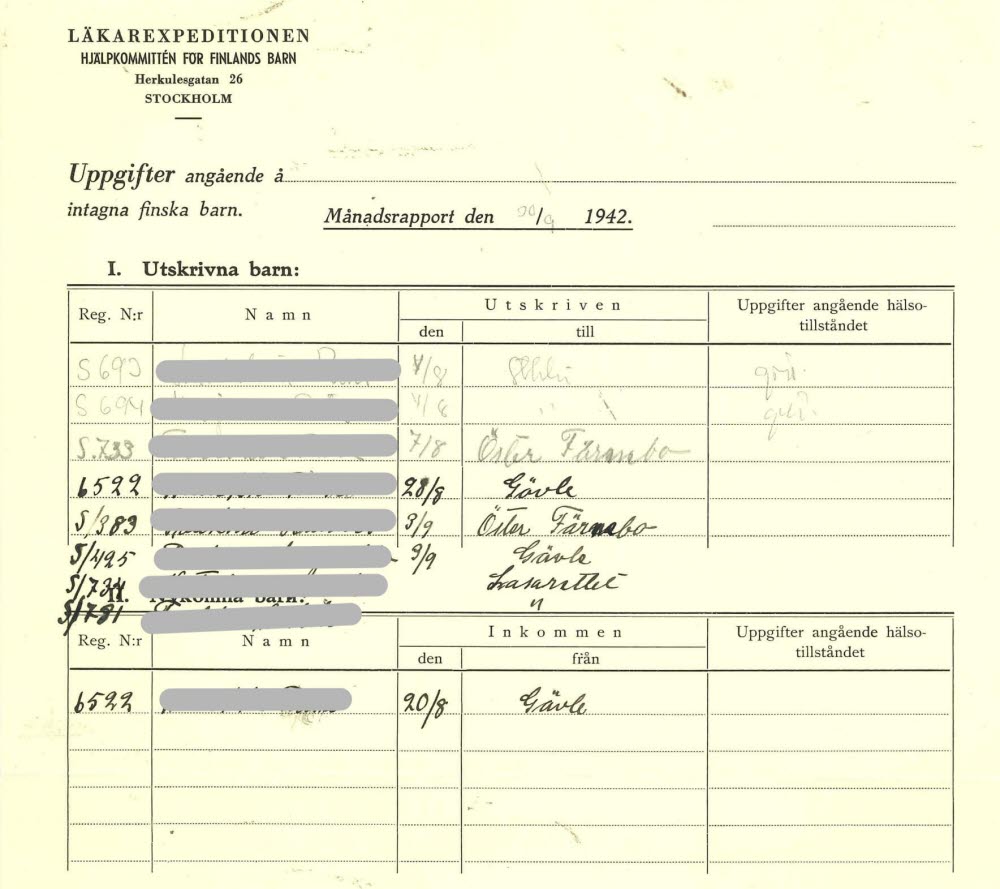 LÄKAREXPEDITIONEN
HJÄLPKOMMITTÉN FÖR FINLANDS BARN
Herkulesgatan 26
STOCKHOLM
Uppgifter angående å
intagna finska barn. Månadsrapport den 30/9 1942.
I. Utskrivna barn:
Reg. N:r Namn Utskriven Uppgifter angående hälso-
den till tillståndet
S 693 4/8
S 694 4/8 "
S.733 7/8 Öster Färnebo
6522 28/8 Gävle
S/383 3/9 Öster Färnebo
S/495 3/9 Gävle
S/734 Lasarettet
II. barn:
S/781 "
Reg. N:r Namn Inkommen Uppgifter angående hälso-
den från tillståndet
6522 20/8 Gävle